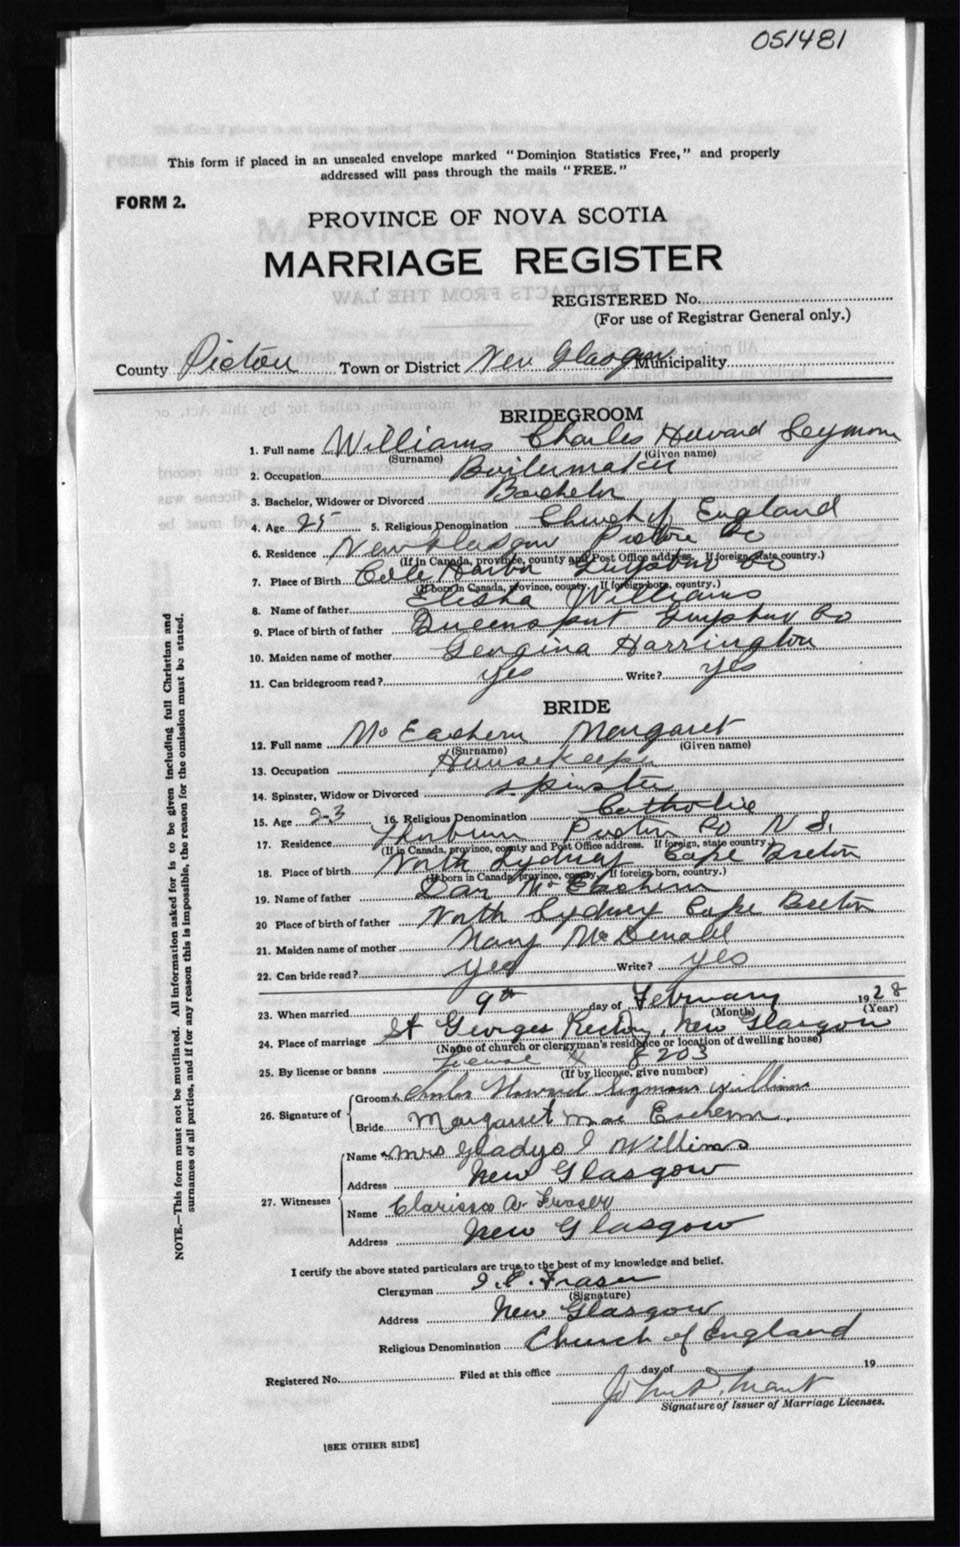 051481
This form if placed in an unsealed envelope marked "Dominion Statistics Free," and properly
addressed will pass through the mails "FREE."
FORM 2.
PROVINCE OF NOVA SCOTIA
MARRIAGE REGISTER
REGISTERED No.
(For use of Registrar General only.)
County Pictou Town or District New Glasgow Municipality
BRIDEGROOM
1. Full name Williams Charles Howard Seymour
(Surname) (Given name)
2. Occupation Boilermaker
3. Bachelor, Widower or Divorced Bachelor
4. Age 25 5. Religious Denomination Church of England
6. Residence New Glasgow Pictou Co
(If in Canada, province, county and Post Office address. If foreign, state country.)
7. Place of Birth Cole Harbor Guysboro Co
(If born in Canada, province, county. If foreign born, country.)
8. Name of father Elisha Williams
9. Place of birth of father Queensport Guysboro Co
10. Maiden name of mother Georgina Harrington
11. Can bridegroom read? Yes Write? Yes
BRIDE
12. Full name Mc Eachern Margaret
(Surname) (Given name)
13. Occupation Housekeeper
14. Spinster, Widow or Divorced spinster
15. Age 23 16. Religious Denomination Catholic
17. Residence Thorburn Pictou Co N S.
(If in Canada, province, county and Post Office address. If foreign, state country)
18. Place of birth North Sydney Cape Breton
(If born in Canada, province, county. If foreign born, country.)
19. Name of father Dan Mc Eachern
20 Place of birth of father North Sydney Cape Breton
21. Maiden name of mother Mary Mc Donald
22. Can bride read? yes Write? yes
23. When married 9th day of February 1928
(Month) (Year)
24. Place of marriage St Georges Rectory, New Glasgow
(Name of church or clergyman's residence or location of dwelling house)
25. By license or banns License 8203
(If by license, give number)
26. Signature of Groom Charles Howard Seymour Williams
Bride Margaret Mac Eachern.
27. Witnesses Name Mrs Gladys I Williams
Address New Glasgow
Name Clarissa A. Fraser
Address New Glasgow
I certify the above stated particulars are true to the best of my knowledge and belief.
Clergyman Fraser
(Signature)
Address New Glasgow
Religious Denomination Church of England
Registered No. Filed at this office day of 19
John Grant
Signature of Issuer of Marriage Licenses.
[SEE OTHER SIDE]
NOTE.—This form must not be mutilated. All information asked for is to be given including full Christian and
surnames of all parties, and if for any reason this is impossible, the reason for the omission must be stated.